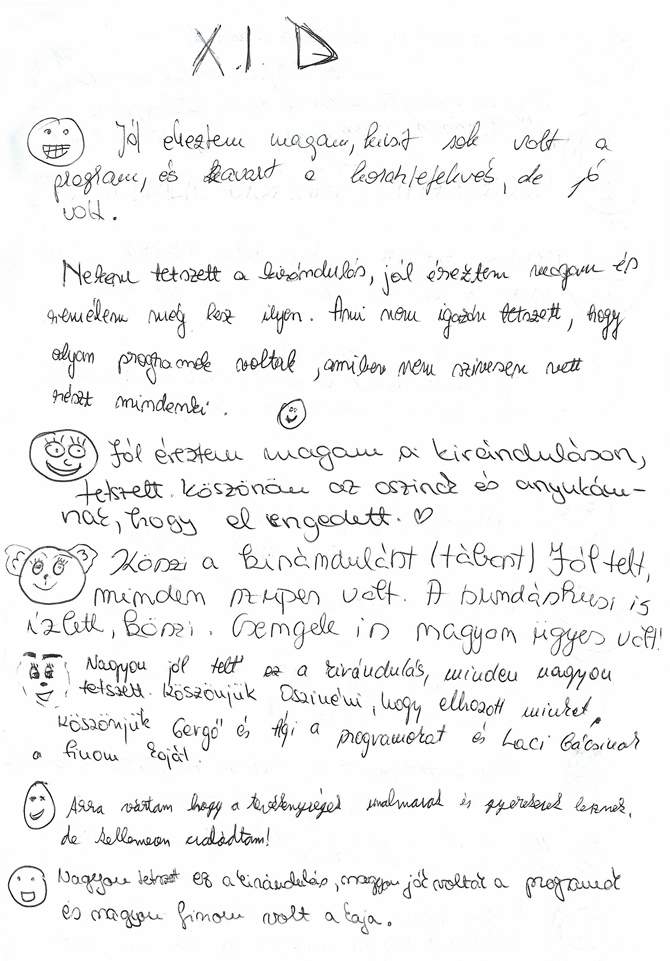 X.I. D
Jól éreztem magam, kicsit sok volt a
program, és zavart a koránlefekvés, de jó
volt.
Nekem tetszett a kirándulás, jól éreztem magam és
remélem még lesz ilyen. Ami nem igazán tetszett, hogy
olyan programok voltak, amiben nem szivesen vett
részt mindenki.
Jól éreztem magam a kiránduláson,
tetszett. Köszönöm az oszinek és anyukám-
nak, hogy el engedett. ♡
Köszi a kirándulást (tábort) Jól telt,
minden szuper volt. A bundáskusi is
ízlett, köszi. Csengele is nagyon ügyes volt!
Nagyon jól telt ez a kirándulás, minden nagyon
tetszett. Köszönjük Oszinéni, hogy elhozott minket,
köszönjük Gergő és Ági a programokat és Laci bácsinak
a finom kaját.
Arra vártam hogy a tevékenységek unalmasak és gyerekesek lesznek,
de kellemesen csalódtam!
Nagyon tetszet ez a kirándulás, nagyon jók voltak a programok
és nagyon finom volt a kaja.